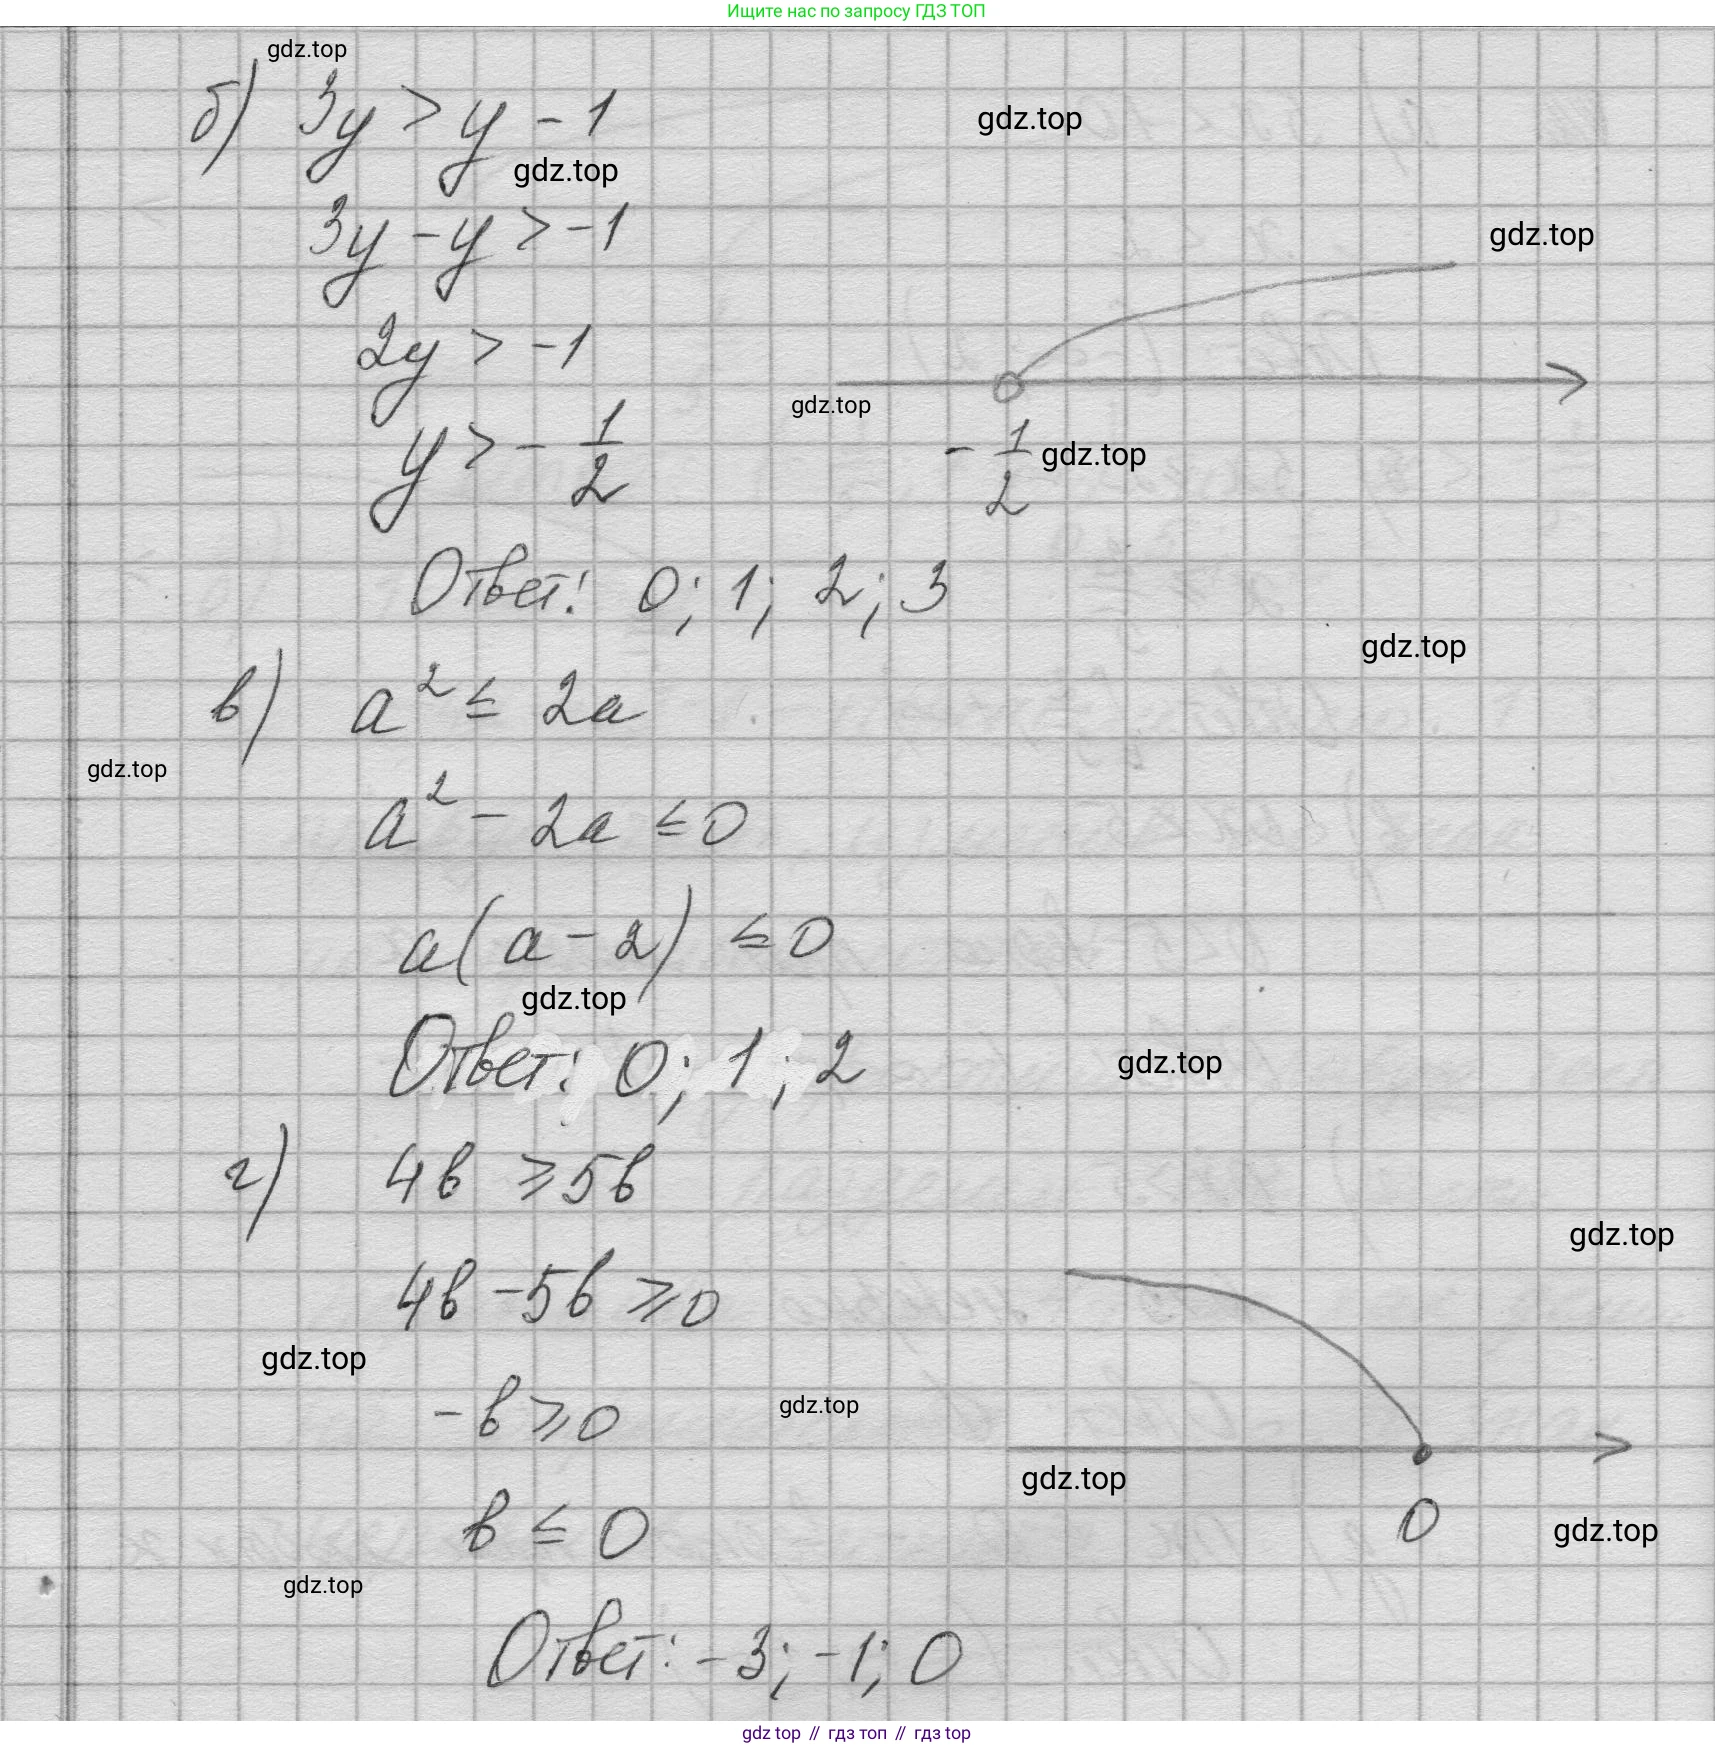 Ищите нас по запросу ГДЗ ТОП
gdz.top
б) 3y > y - 1
gdz.top
gdz.top
3y - y > -1
gdz.top
2y > -1
gdz.top
y > - 1/2
- 1/2
gdz.top
Ответ: 0; 1; 2; 3
gdz.top
в) a² ≤ 2a
gdz.top
a² - 2a ≤ 0
a(a - 2) ≤ 0
gdz.top
Ответ: 0; 1; 2
gdz.top
г) 4в ≥ 5в
gdz.top
4в - 5в ≥ 0
gdz.top
-в ≥ 0
gdz.top
gdz.top
в ≤ 0
0
gdz.top
gdz.top
Ответ: -3; -1; 0
gdz top // гдз топ // гдз top